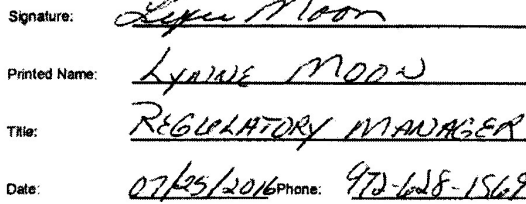 Signature: Lynne Moon
Printed Name: LYNNE MOON
Title: REGULATORY MANAGER
Date: 07/25/2016 Phone: 972-628-1569